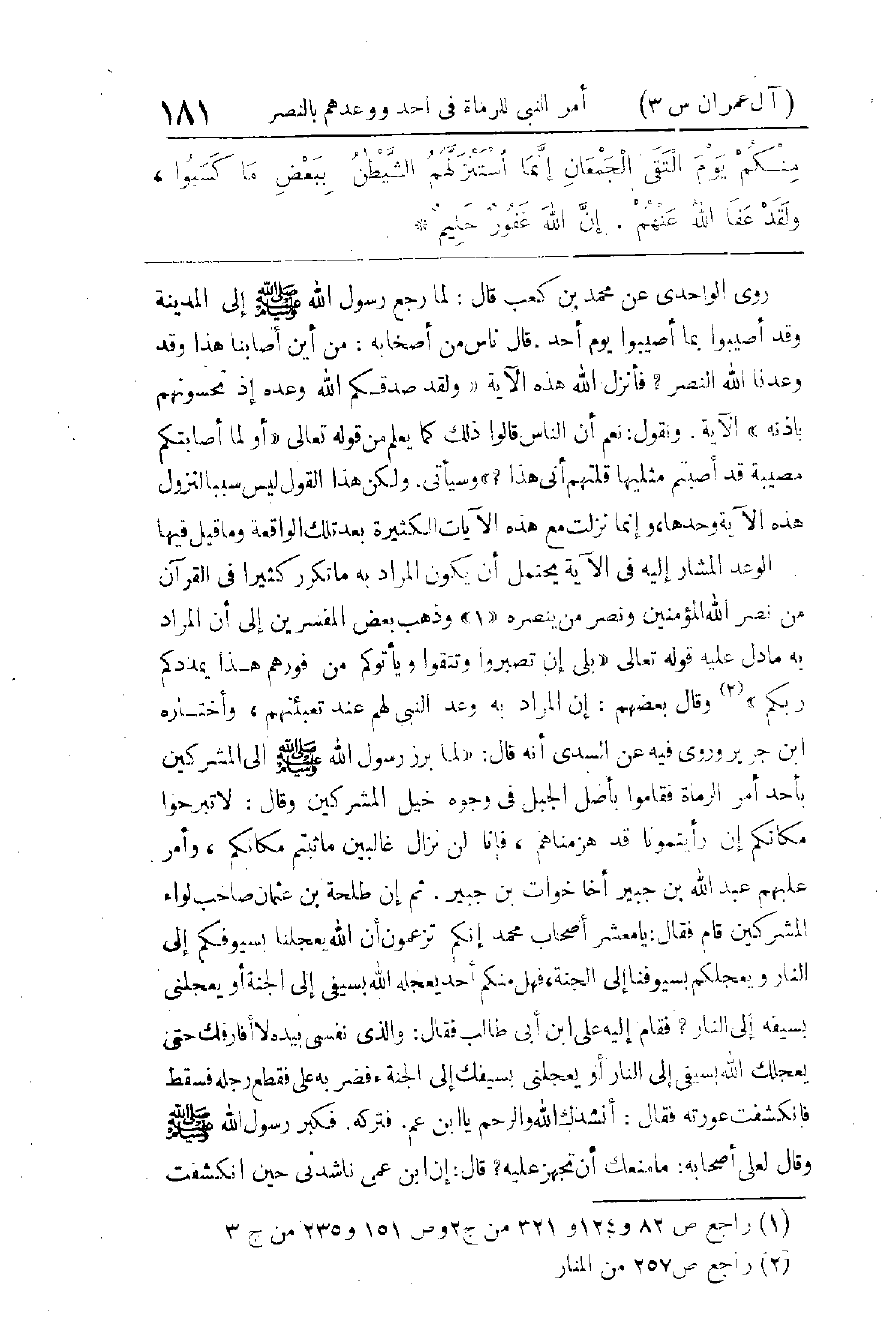 (آل عمران س ٣) أمر النبى للرماة فى احد ووعدهم بالنصر ١٨١
مِنْكُمْ يَوْمَ الْتَقَى الْجَمْعَانِ إِنَّمَا اُسْتَنْزَلَّهُمُ الشَّيْطٰنُ بِبَعْضِ مَا كَسَبُوا ،
وَلَقَدْ عَفَا اللهُ عَنْهُمْ . إِنَّ اللهَ غَفُورٌ حَلِيمٌ *
روى الواحدى عن محمد بن كعب قال : لما رجع رسول الله ﷺ إلى المدينة
وقد أصيبوا بما أصيبوا يوم أحد . قال ناس من أصحابه : من أين أصابنا هذا وقد
وعدنا الله النصر ؟ فأنزل الله هذه الآية « ولقد صدقكم الله وعده إذ تحسونهم
باذنه » الآية . ونقول : نعم أن الناس قالوا ذلك كما يعلم من قوله تعالى « أو لما أصابتكم
مصيبة قد أصبتم مثليها قلتم أنى هذا ؟ » وسيأتى . ولكن هذا القول ليس سببا لنزول
هذه الآية وحدها ، و إنما نزلت مع هذه الآيات الكثيرة بعد تلك الواقعة وماقيل فيها
الوعد المشار إليه فى الآية يحتمل أن يكون المراد به ماتكرر كثيرا فى القرآن
من نصر الله المؤمنين ونصر من ينصره « ١ » وذهب بعض المفسرين إلى أن المراد
به مادل عليه قوله تعالى « بلى إن تصبروا وتتقوا ويأتوكم من فورهم هـذا يمددكم
ربكم » (٢) وقال بعضهم : إن المراد به وعد النبى لهم عند تعبئتهم ، وأختـاره
ابن جرير وروى فيه عن السدى أنه قال : « لما برز رسول الله ﷺ الى المشركين
بأحد أمر الرماة فقاموا بأصل الجبل فى وجوه خيل المشركين وقال : لا تبرحوا
مكانكم إن رأيتمونا قد هزمناهم ، فإنا لن نزال غالبين ماثبتم مكانكم ، وأمر
عليهم عبد الله بن جبير أخا خوات بن جبير . ثم إن طلحة بن عثمان صاحب لواء
المشركين قام فقال : يامعشر أصحاب محمد إنكم تزعمون أن الله يعجلنا بسيوفكم إلى
النار ويعجلكم بسيوفنا إلى الجنة ، فهل منكم أحد يعجله الله بسيفى إلى الجنة أو يعجلنى
بسيفه إلى النار ؟ فقام إليه على ابن أبى طالب فقال : والذى نفسى بيده لا أفارقك حتى
يعجلك الله بسيفى إلى النار أو يعجلنى بسيفك إلى الجنة ، فضربه على فقطع رجله فسقط
فانكشفت عورته فقال : أنشدك الله والرحم ياابن عم . فتركه . فكبر رسول الله ﷺ
وقال لعلى أصحابه : مامنعك أن تجهز عليه ؟ قال : إن ابن عمى ناشدنى حين انكشفت
(١) راجع ص ٨٢ و١٢٤ و ٣٢١ من ج٢ وص ١٥١ و٢٣٥ من ج ٣
(٢) راجع ص ٢٥٧ من المنار